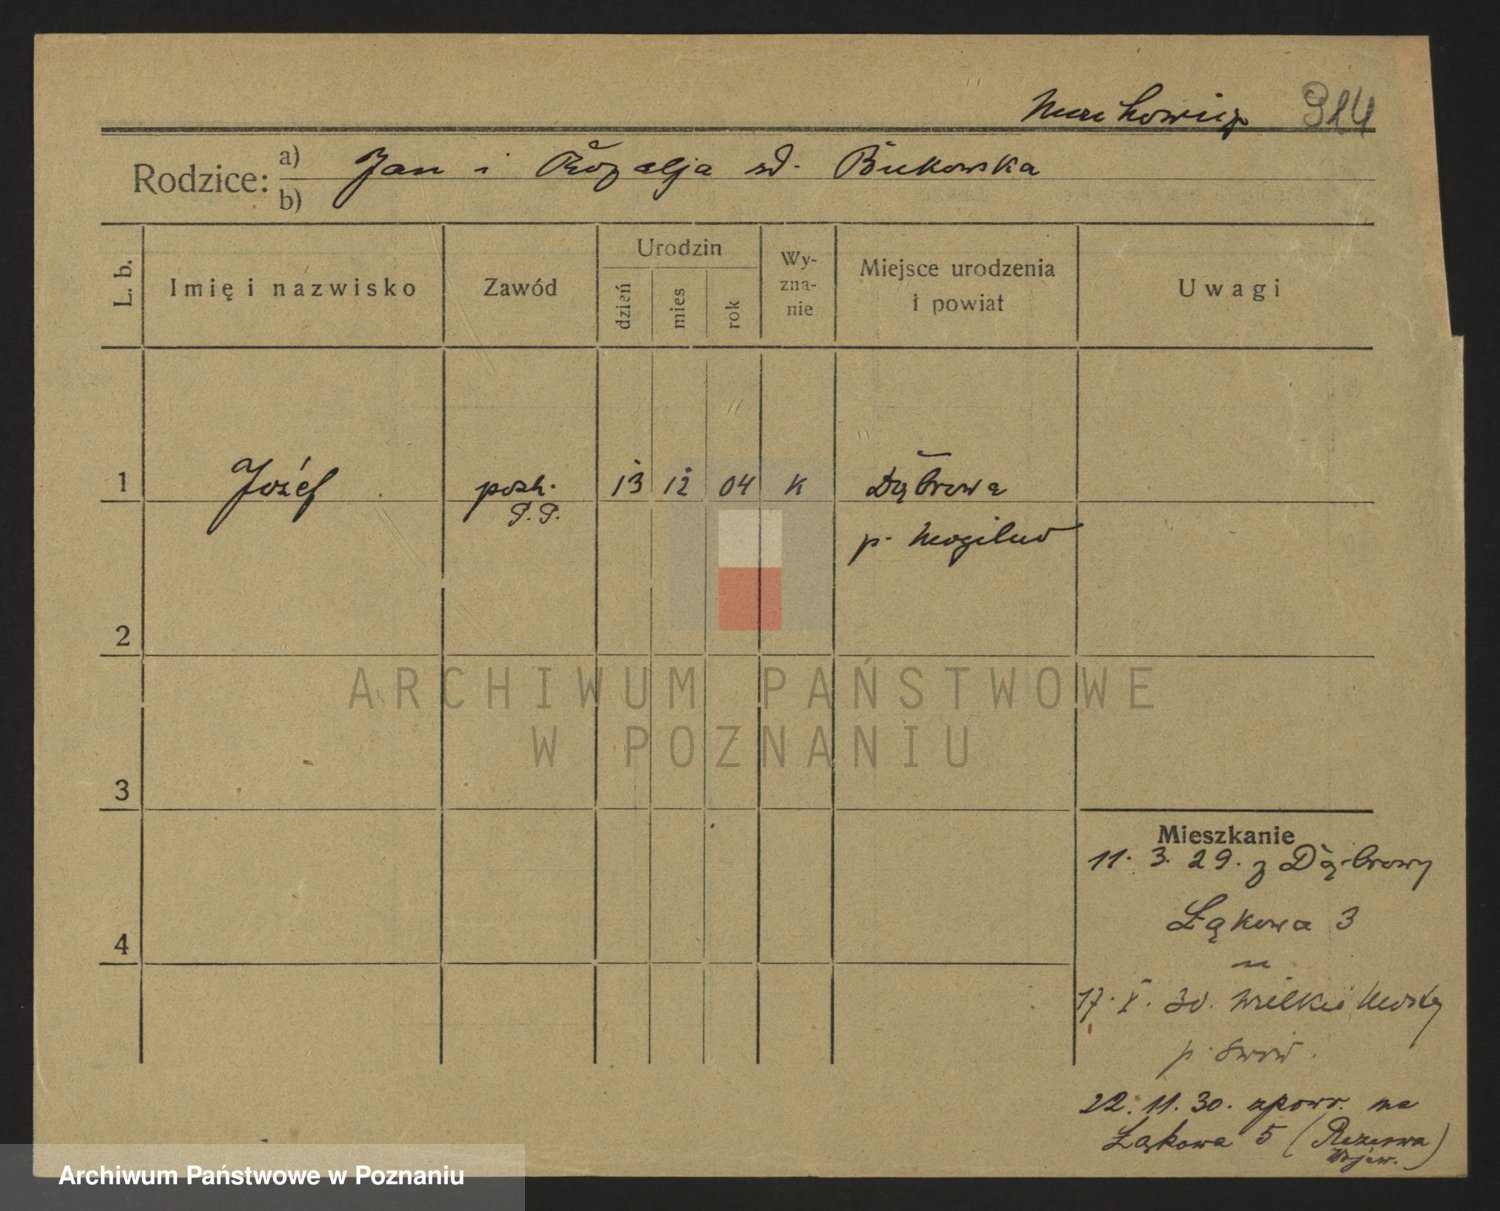 914
Rodzice: a) Jan i Rozalja zd. Bukowska
b)
L. b.
Imię i nazwisko
Zawód
Urodzin
dzień
mies
rok
Wy-
zna-
nie
Miejsce urodzenia
i powiat
Uwagi
1 Józef post. 13 12 04 k Dąbrowa
P.P.
p. Mogilno
2
3
4
Mieszkanie
11. 3. 29. z Dąbrowy
Łąkowa 3
17. X. 30. Wielkie Mosty
22. 11. 30. zpowr. na
Łąkowa 5 (Rezerwa
Wojew.)
ARCHIWUM PAŃSTWOWE
W POZNANIU
Archiwum Państwowe w Poznaniu